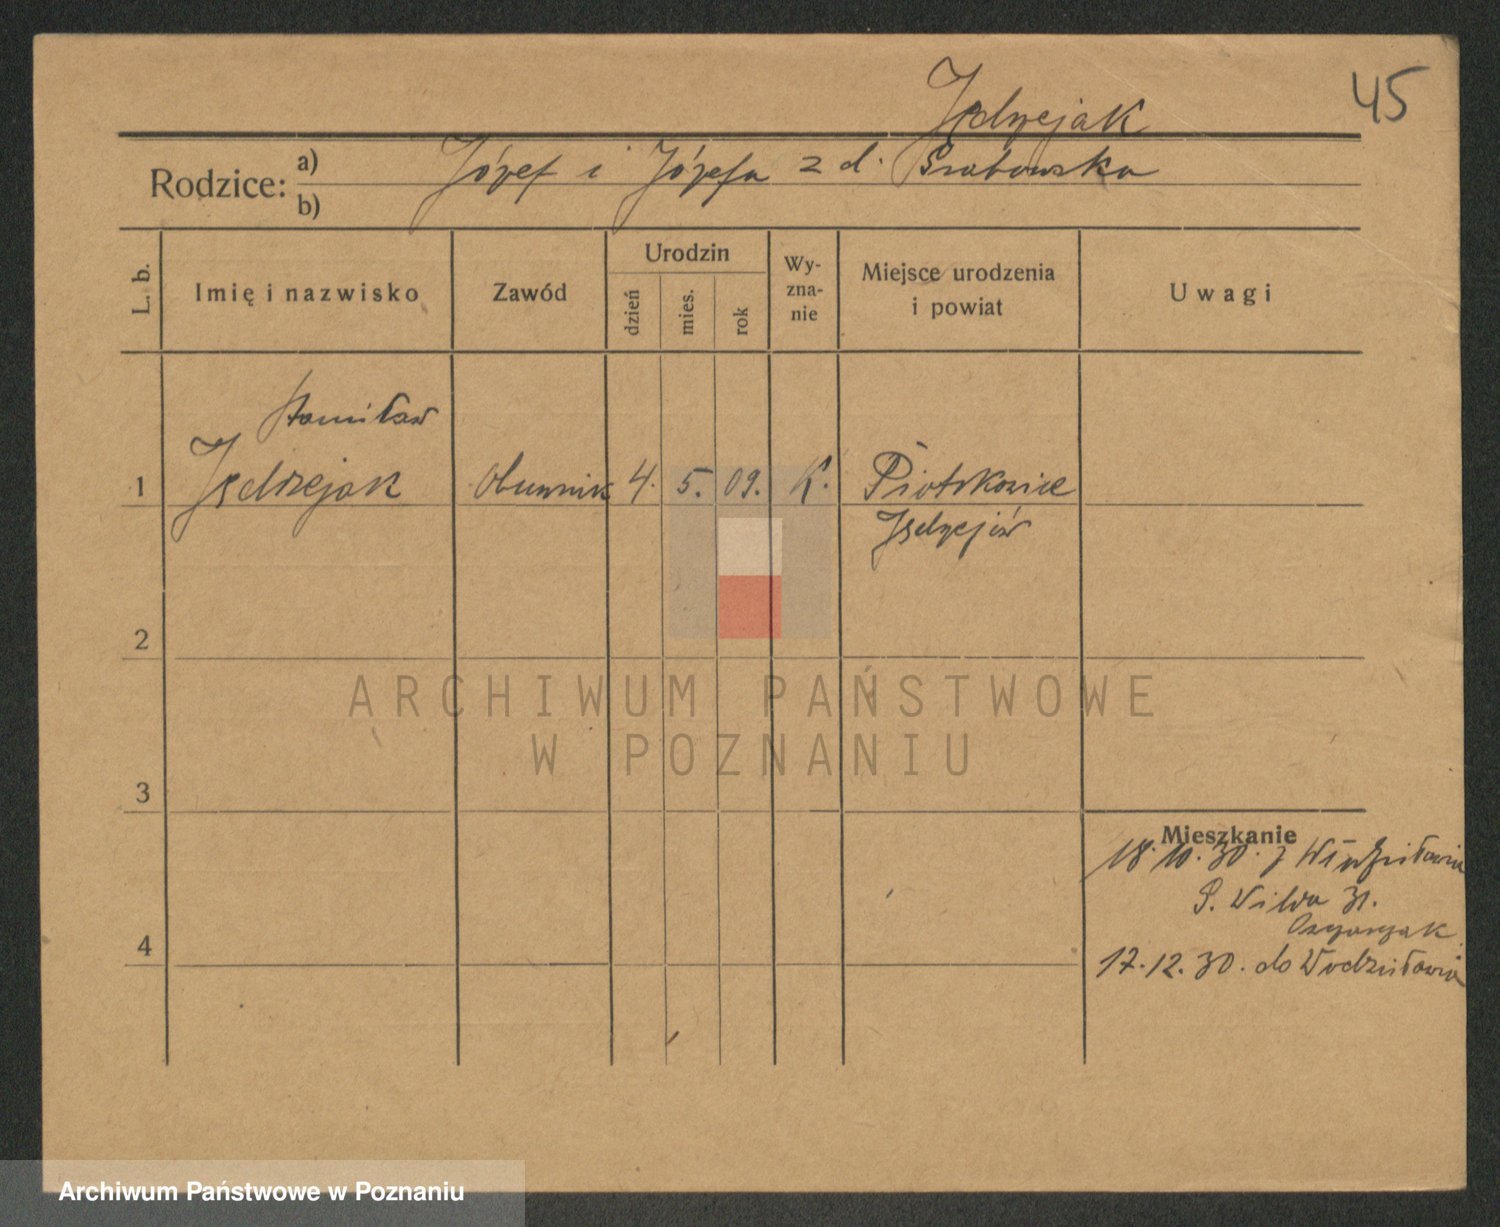 45
Jędrzejak
Rodzice: a) Józef i Józefa z d. Grabowska
b)
L. b.
Imię i nazwisko
Zawód
Urodzin
dzień
mies.
rok
Wy-
zna-
nie
Miejsce urodzenia
i powiat
Uwagi
Stanisław
1 Jędrzejak Obuwnik 4. 5. 09. K. Piotrkowice
Jędrzejów
2
ARCHIWUM PAŃSTWOWE
W POZNANIU
3
Mieszkanie
18.10.30. z Wodzisławia
G. Wilda 31.
4
17.12.30. do Wodzisławia
Archiwum Państwowe w Poznaniu